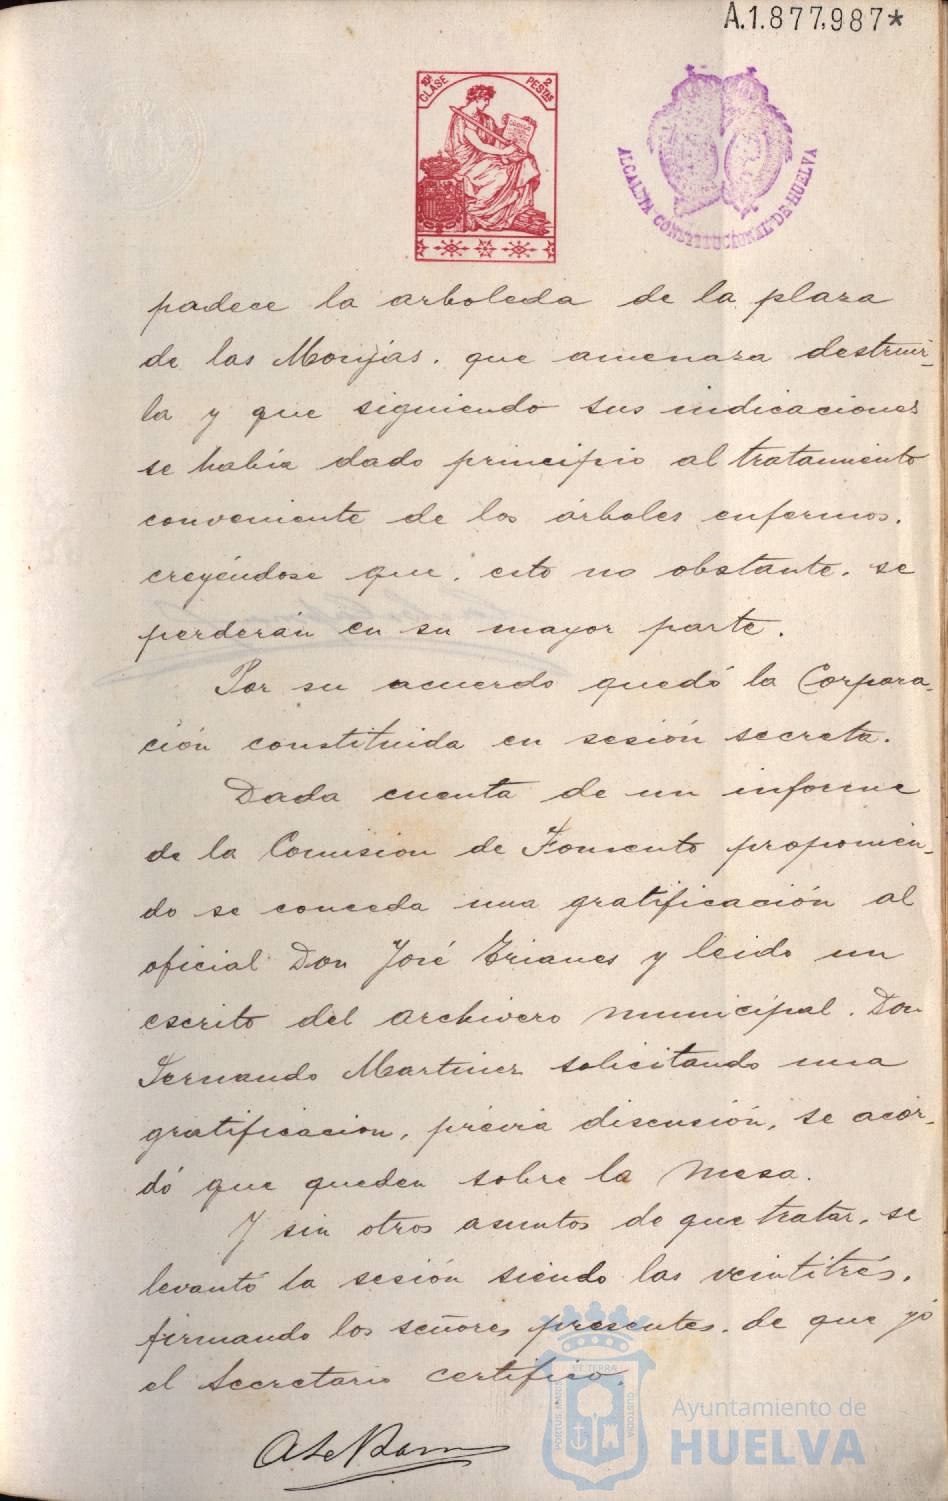 A.1.877,987*
10ª CLASE
2 PESTAS
ALCALDIA CONSTITUCIONAL DE HUELVA
padece la arboleda de la plaza
de las Monjas, que amenaza destruir-
la y que siguiendo sus indicaciones
se había dado principio al tratamiento
conveniente de los árboles enfermos,
creyéndose que, esto no obstante, se
perderán en su mayor parte.
Por su acuerdo quedó la Corpora-
ción constituida en sesión secreta.
Dada cuenta de un informe
de la Comision de Fomento proponien-
do se conceda una gratificación al
oficial Don José Trianes y leido un
escrito del archivero municipal, Don
Fernando Martinez solicitando una
gratificacion, prévia discusión, se acor-
dó que queden sobre la mesa.
Y sin otros asuntos de que tratar, se
levantó la sesión siendo las veintitrés,
firmando los señores presentes, de que yó
el Secretario certifico.
ET TERRÆ
PORTUS MARIS
CUSTODIA
Ayuntamiento de
HUELVA